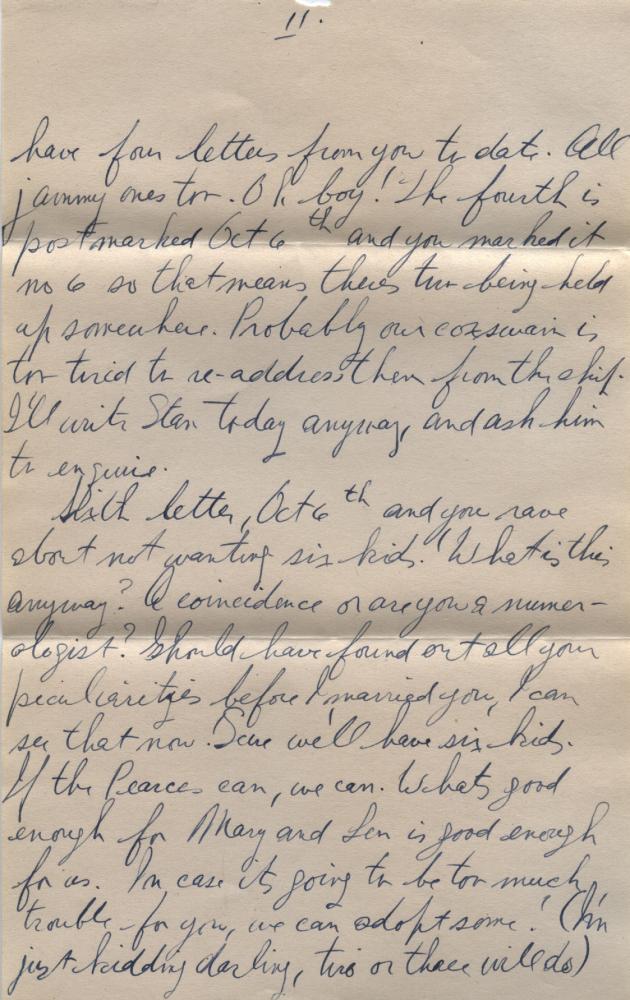 11.
have four letters from you to date. All
jammy ones too. Oh boy! The fourth is
postmarked Oct 6th and you marked it
no 6 so that means theres two being held
up somewhere. Probably our coxswain is
too tired to re-address them from the ship.
I'll write Stan today anyway, and ask him
to enquire.
Sixth letter, Oct 6th and you rave
about not wanting six kids. What is this
anyway? A coincidence or are you a numer-
ologist? Should have found out all your
peculiarities before I married you, I can
see that now. Sure we'll have six kids.
If the Pearces can, we can. Whats good
enough for Mary and Len is good enough
for us. In case its going to be too much
trouble for you, we can adopt some! (I'm
just kidding darling, two or three will do)